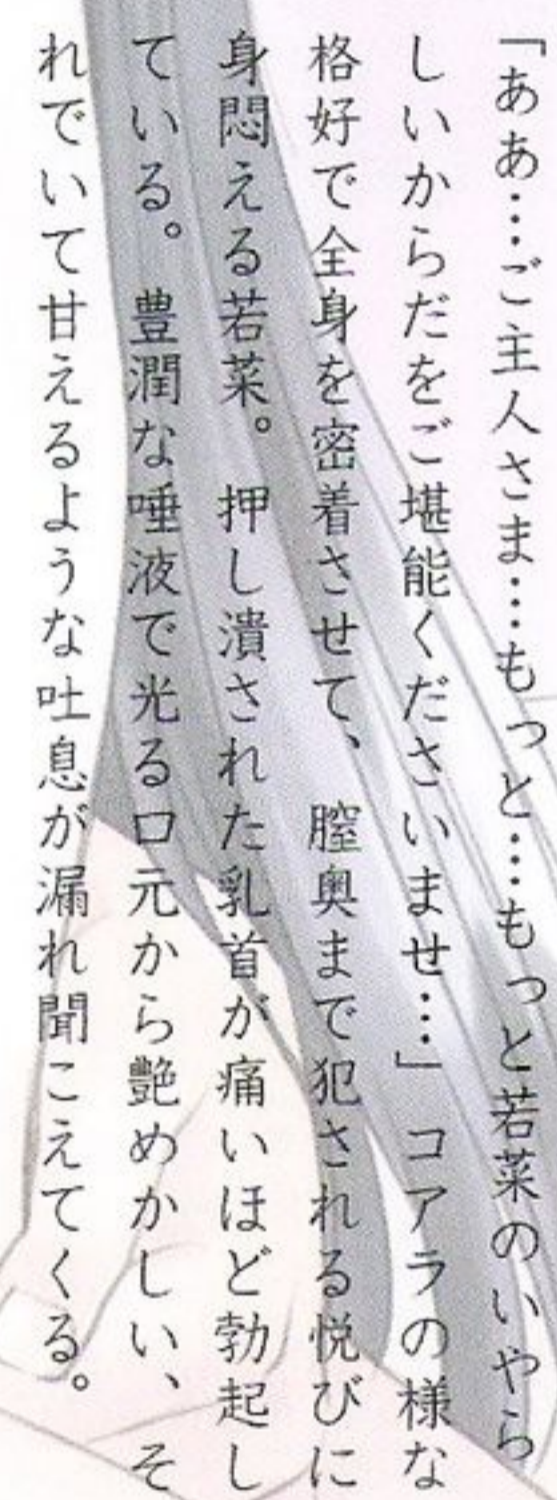 「ああ…ご主人さま…もっと…もっと若菜のいやら
しいからだをご堪能くださいませ…」コアラの様な
格好で全身を密着させて、膣奥まで犯される悦びに
身悶える若菜。押し潰された乳首が痛いほど勃起し
ている。豊潤な唾液で光る口元から艶めかしい、そ
れでいて甘えるような吐息が漏れ聞こえてくる。